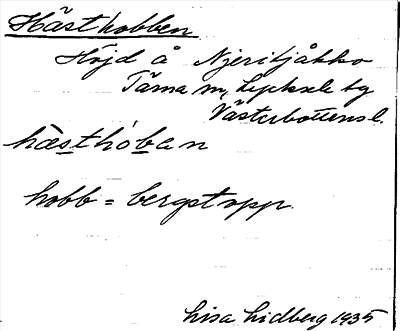 Hästhobben
Höjd å Njeritjåkko
Tärna sn, Lycksele tg
Västerbottens l.
hästhòban
hobb = bergstopp.
Lisa Lidberg 1935